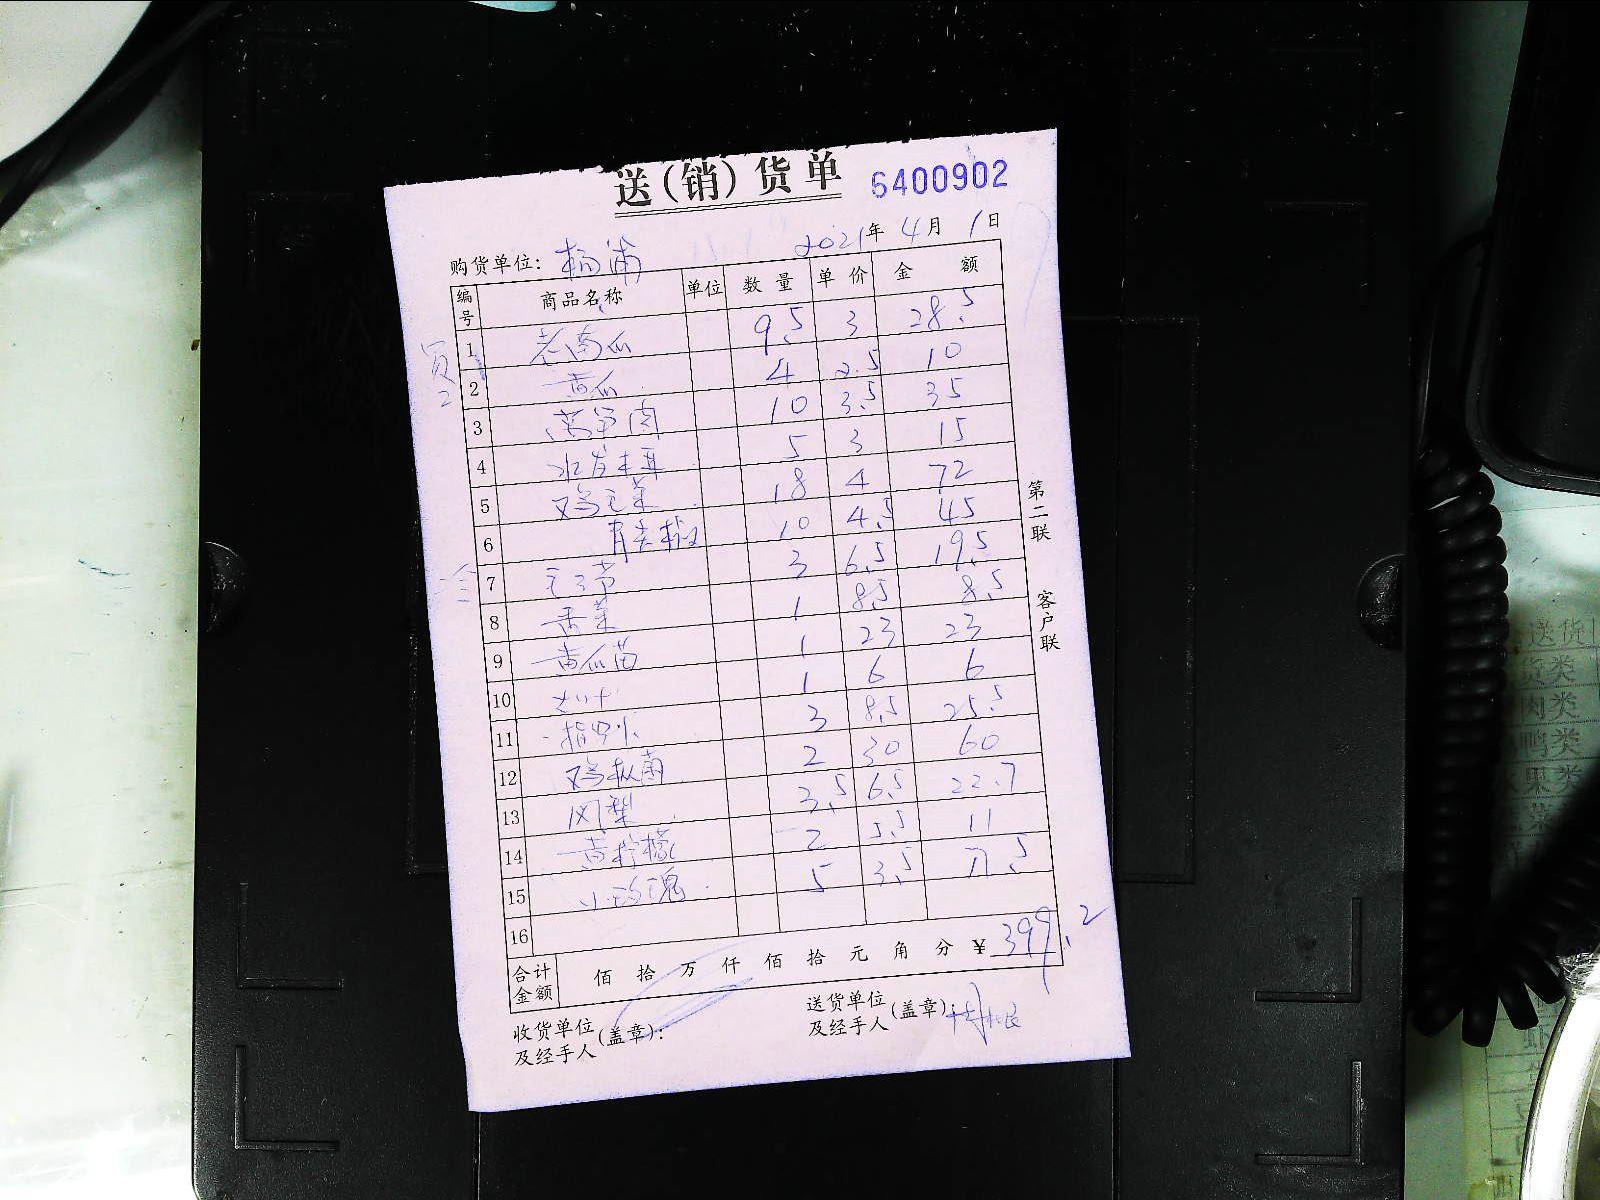 送(销)货单 6400902
2021年4月1日
购货单位: 杨浦
编号 商品名称 单位 数量 单价 金额
1 老南瓜 9.5 3 28.5
2 黄瓜 4 2.5 10
3 莴笋肉 10 3.5 35
4 水发木耳 5 3 15
5 鸡毛菜 18 4 72
6 青尖椒 10 4.5 45
7 3 6.5 19.5
8 香菜 1 8.5 8.5
9 黄瓜苗 1 23 23
10 1 6 6
11 3 8.5 25.5
12 鸡枞菌 2 30 60
13 凤梨 3.5 6.5 22.7
14 黄柠檬 2 5.5 11
15 小玫瑰 5 3.5 17.5
16
合计金额 佰 拾 万 仟 佰 拾 元 角 分 ¥ 399.2
收货单位及经手人(盖章):
送货单位及经手人(盖章):
第二联 客户联
送货
货类
肉类
鸭类
果类